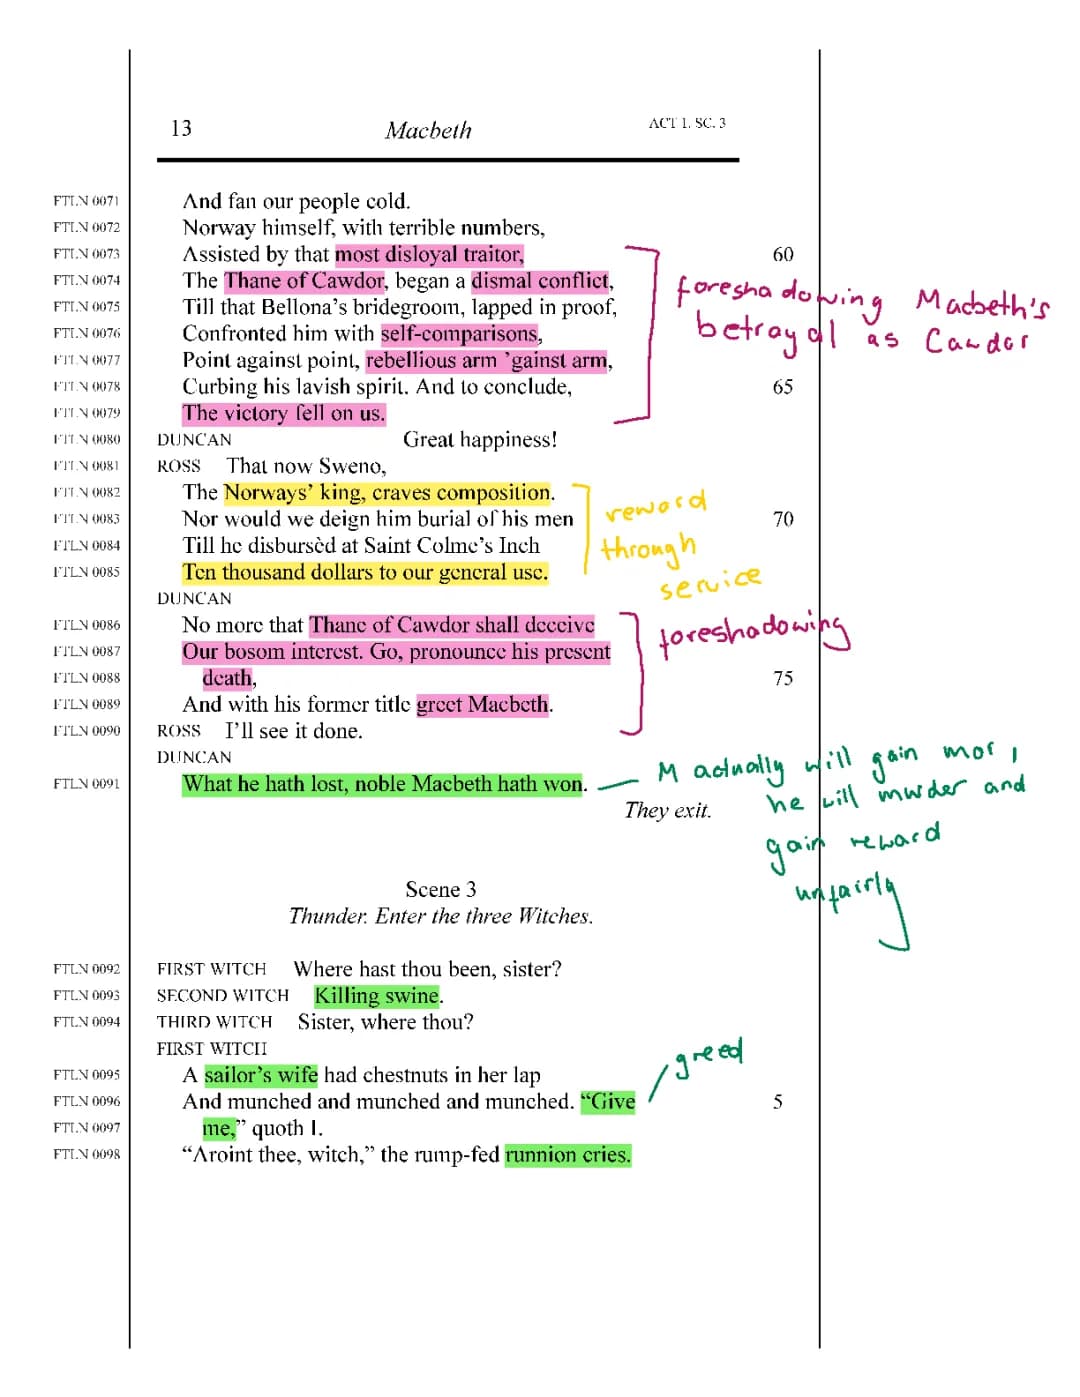 13 Macbeth ACT 1. SC. 3
FTLN 0071 And fan our people cold.
FTLN 0072 Norway himself, with terrible numbers,
FTLN 0073 Assisted by that most disloyal traitor, 60
FTLN 0074 The Thane of Cawdor, began a dismal conflict,
FTLN 0075 Till that Bellona's bridegroom, lapped in proof,
FTLN 0076 Confronted him with self-comparisons,
FTLN 0077 Point against point, rebellious arm 'gainst arm,
FTLN 0078 Curbing his lavish spirit. And to conclude, 65
FTLN 0079 The victory fell on us.
foreshadowing Macbeth's
betrayal as Cawdor
FTLN 0080 DUNCAN Great happiness!
FTLN 0081 ROSS That now Sweno,
FTLN 0082 The Norways' king, craves composition.
FTLN 0083 Nor would we deign him burial of his men 70
FTLN 0084 Till he disbursèd at Saint Colme's Inch
FTLN 0085 Ten thousand dollars to our general use.
reward
through
service
DUNCAN
FTLN 0086 No more that Thane of Cawdor shall deceive
FTLN 0087 Our bosom interest. Go, pronounce his present
FTLN 0088 death, 75
FTLN 0089 And with his former title greet Macbeth.
foreshadowing
FTLN 0090 ROSS I'll see it done.
DUNCAN
FTLN 0091 What he hath lost, noble Macbeth hath won.
They exit.
M actually will gain mor,
he will murder and
gain reward
unfairly
Scene 3
Thunder. Enter the three Witches.
FTLN 0092 FIRST WITCH Where hast thou been, sister?
FTLN 0093 SECOND WITCH Killing swine.
FTLN 0094 THIRD WITCH Sister, where thou?
FIRST WITCH
FTLN 0095 A sailor's wife had chestnuts in her lap
FTLN 0096 And munched and munched and munched. "Give 5
FTLN 0097 me," quoth I.
FTLN 0098 "Aroint thee, witch," the rump-fed runnion cries.
greed